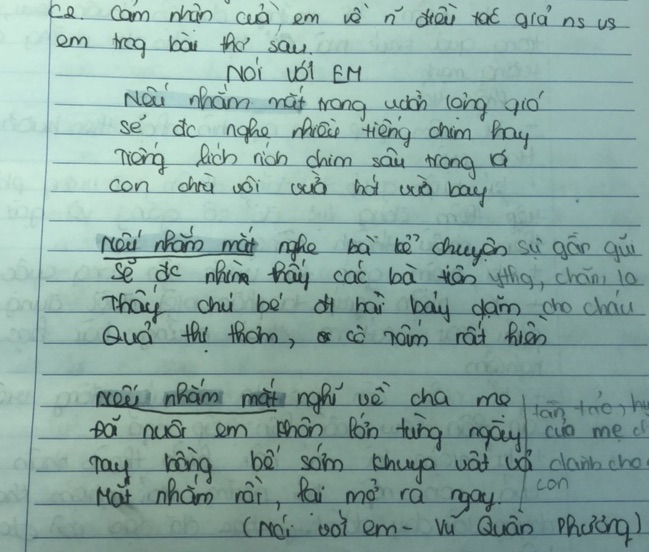 C2. Cảm nhận của em về n~ điều tác giả ns vs
em trog bài thơ sau.
NÓI VỚI EM
Nếu nhắm mắt trong vườn lộng gió
sẽ đc nghe nhiều tiếng chim hay
Tiếng lích rích chim sâu trong lá
con chìa vôi vừa hót vừa bay
Nếu nhắm mắt nghe bà kể chuyện sự gần gũi
sẽ đc nhìn thấy các bà tiên ythg, chăm lo
Thấy chú bé đi hài bảy dặm cho cháu
Quả thị thơm, cô tấm rất hiền
Nếu nhắm mắt nghĩ về cha mẹ
Đã nuôi em khôn lớn từng ngày tần tảo, hy
Tay bồng bế sớm khuya vất vả của mẹ
Mắt nhắm rồi, lại mở ra ngay. dành cho
con
(Nói với em - Vũ Quần Phương)